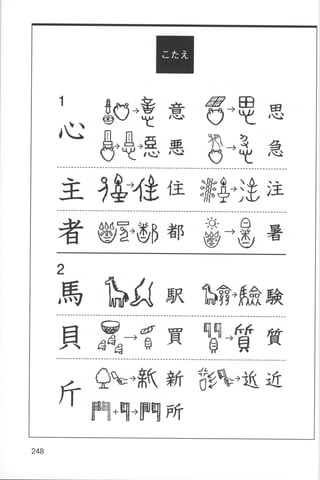 こたえ
1
心 意 思
悪 急
主 住 注
者 都 暑
2
馬 駅 験
貝 買 質
斤 新 近
所
248